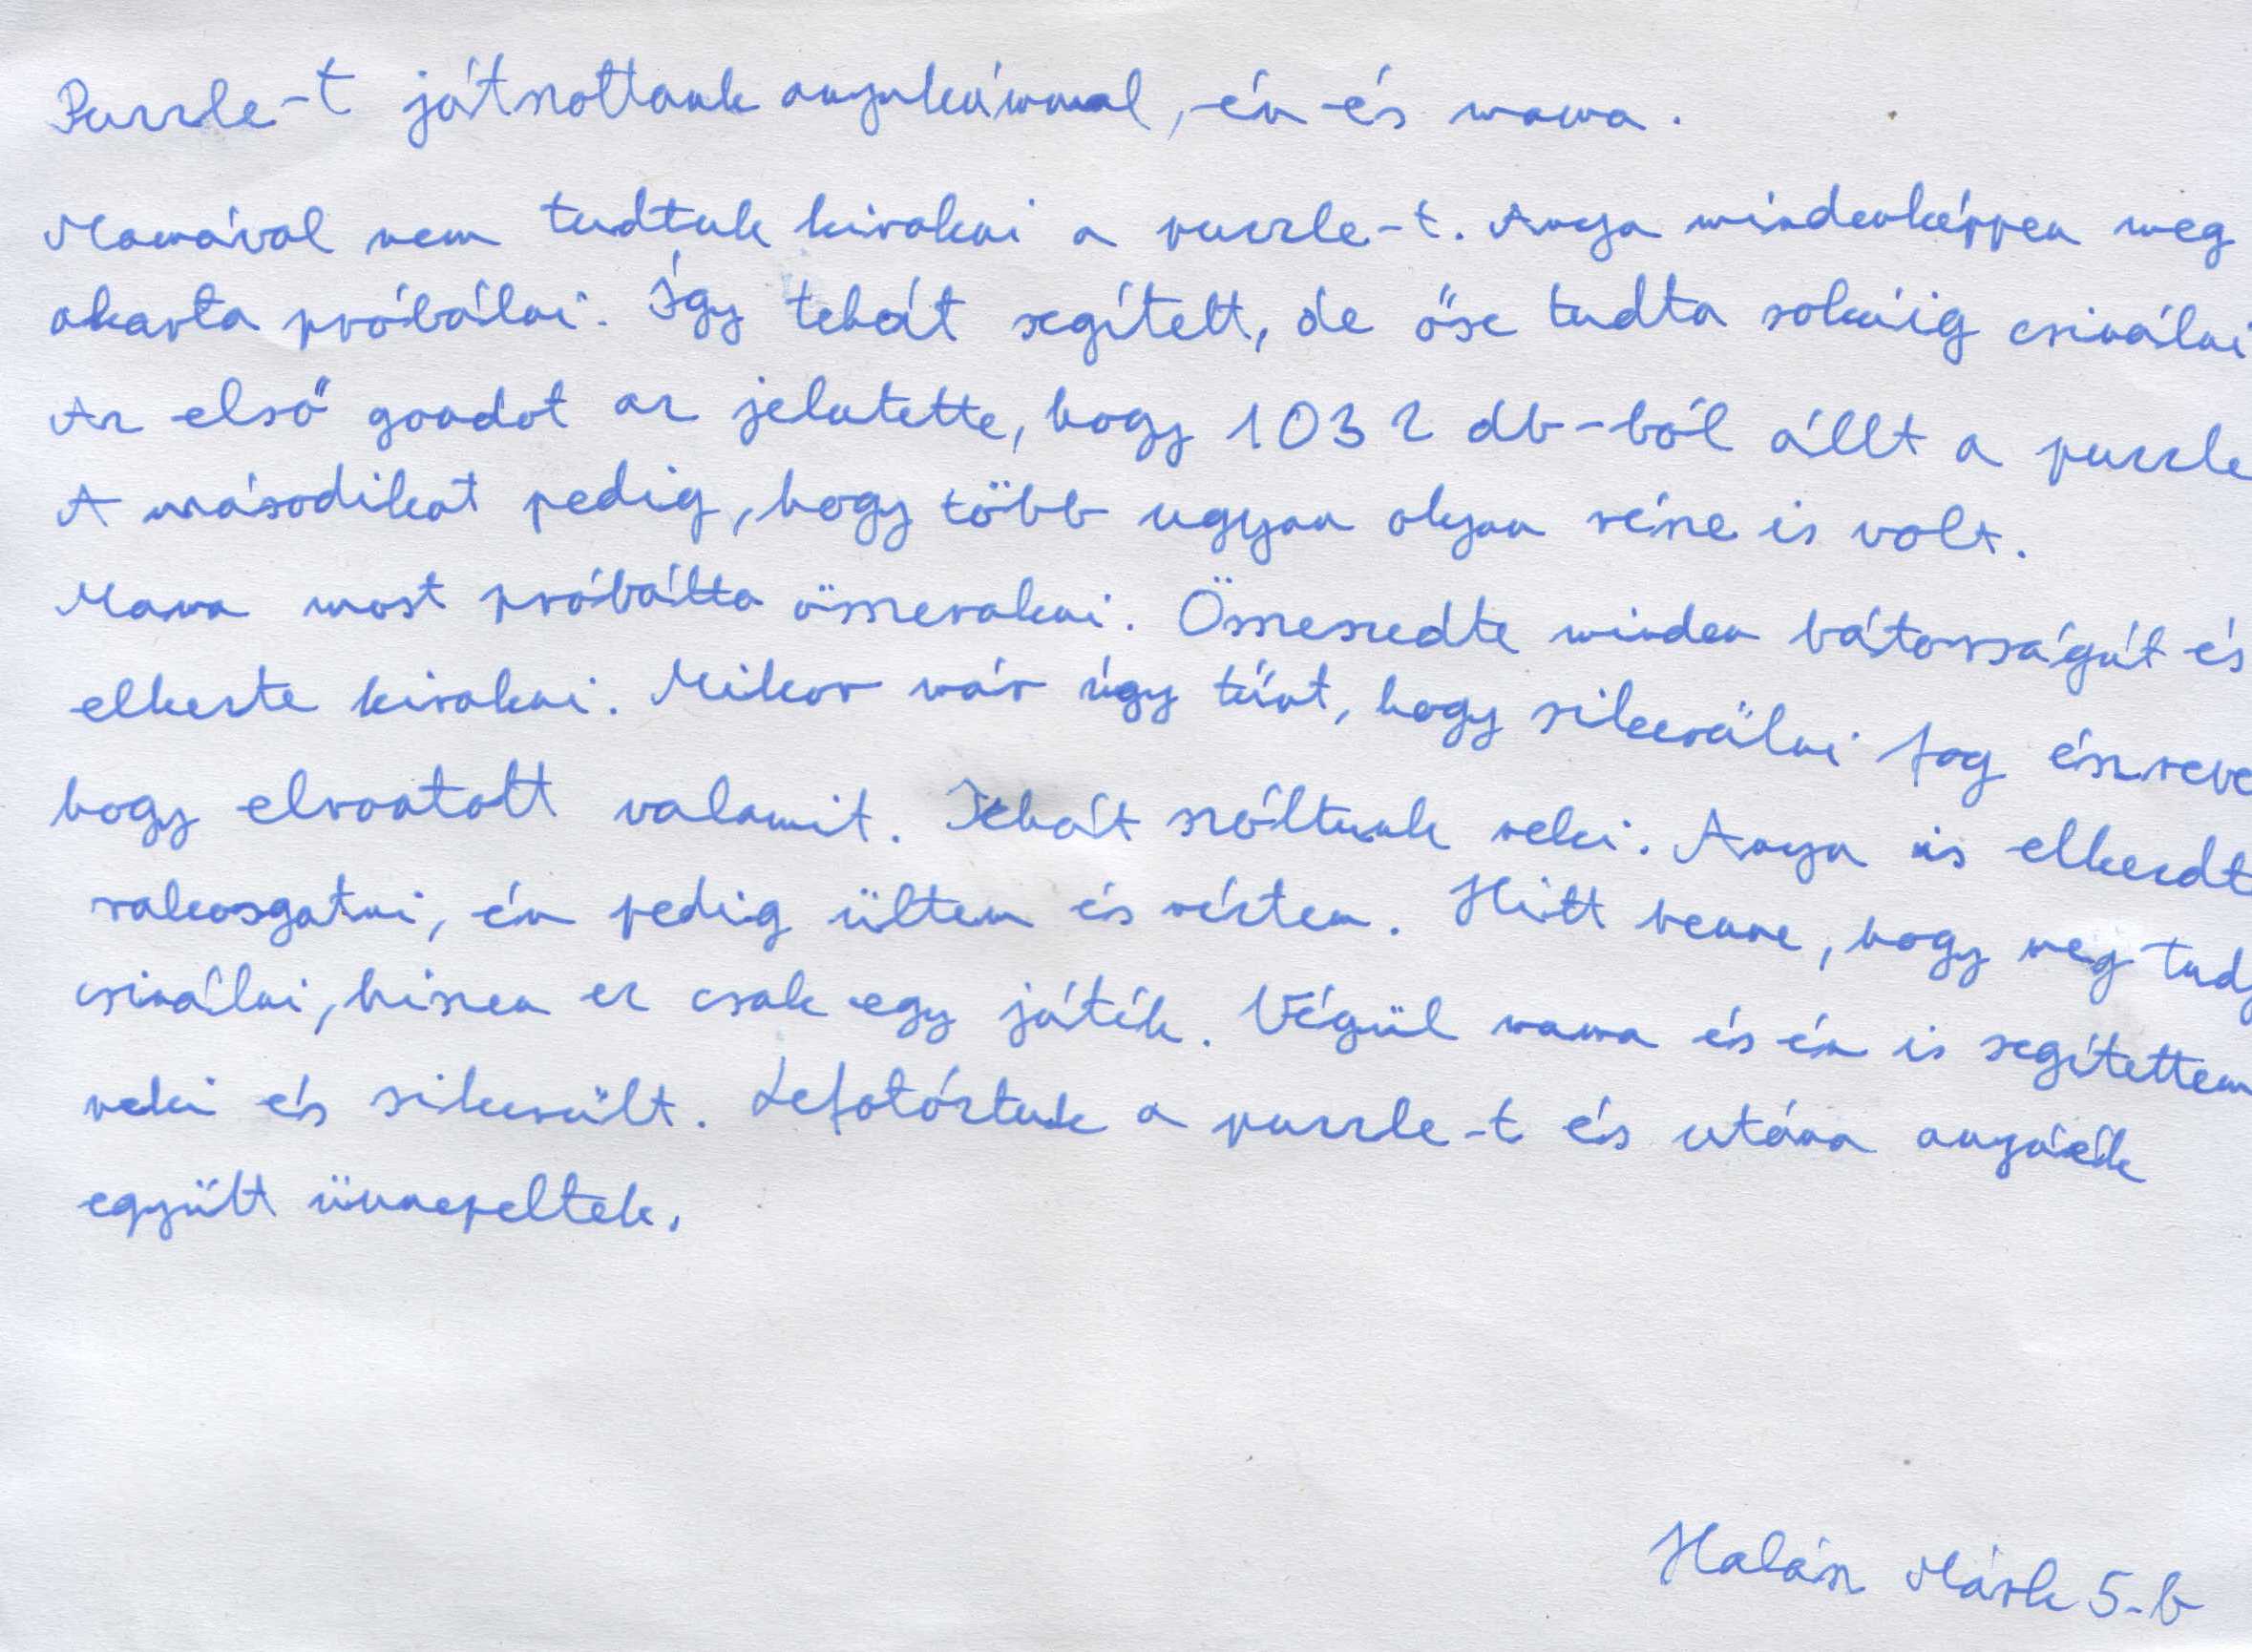 Puzzle-t játszottunk anyukámmal, én és mama.
Mamával nem tudtuk kirakni a puzzle-t. Anya mindenképpen meg
akarta próbálni. Így tehát segített, de őse tudta sokáig csinálni
Az első gondot az jelntette, hogy 1032 db-ból állt a puzzle
A másodikat pedig, hogy több ugyan olyan része is volt.
Mama most próbálta összerakni. Összeszedte minden bátorságát és
elkezte kirakni. Mikor már úgy tűnt, hogy sikerülni fog észreve
hogy elrontott valamit. Tehát szóltunk neki. Anya is elkezdt
rakosgatni, én pedig ültem és néztem. Hitt benne, hogy meg tudj
csinálni, hiszen ez csak egy játék. Végül mama és én is segítettem
neki és sikerült. Lefotóztuk a puzzle-t és utána anyáék
együtt ünnepeltek.
Halász Márk 5.b